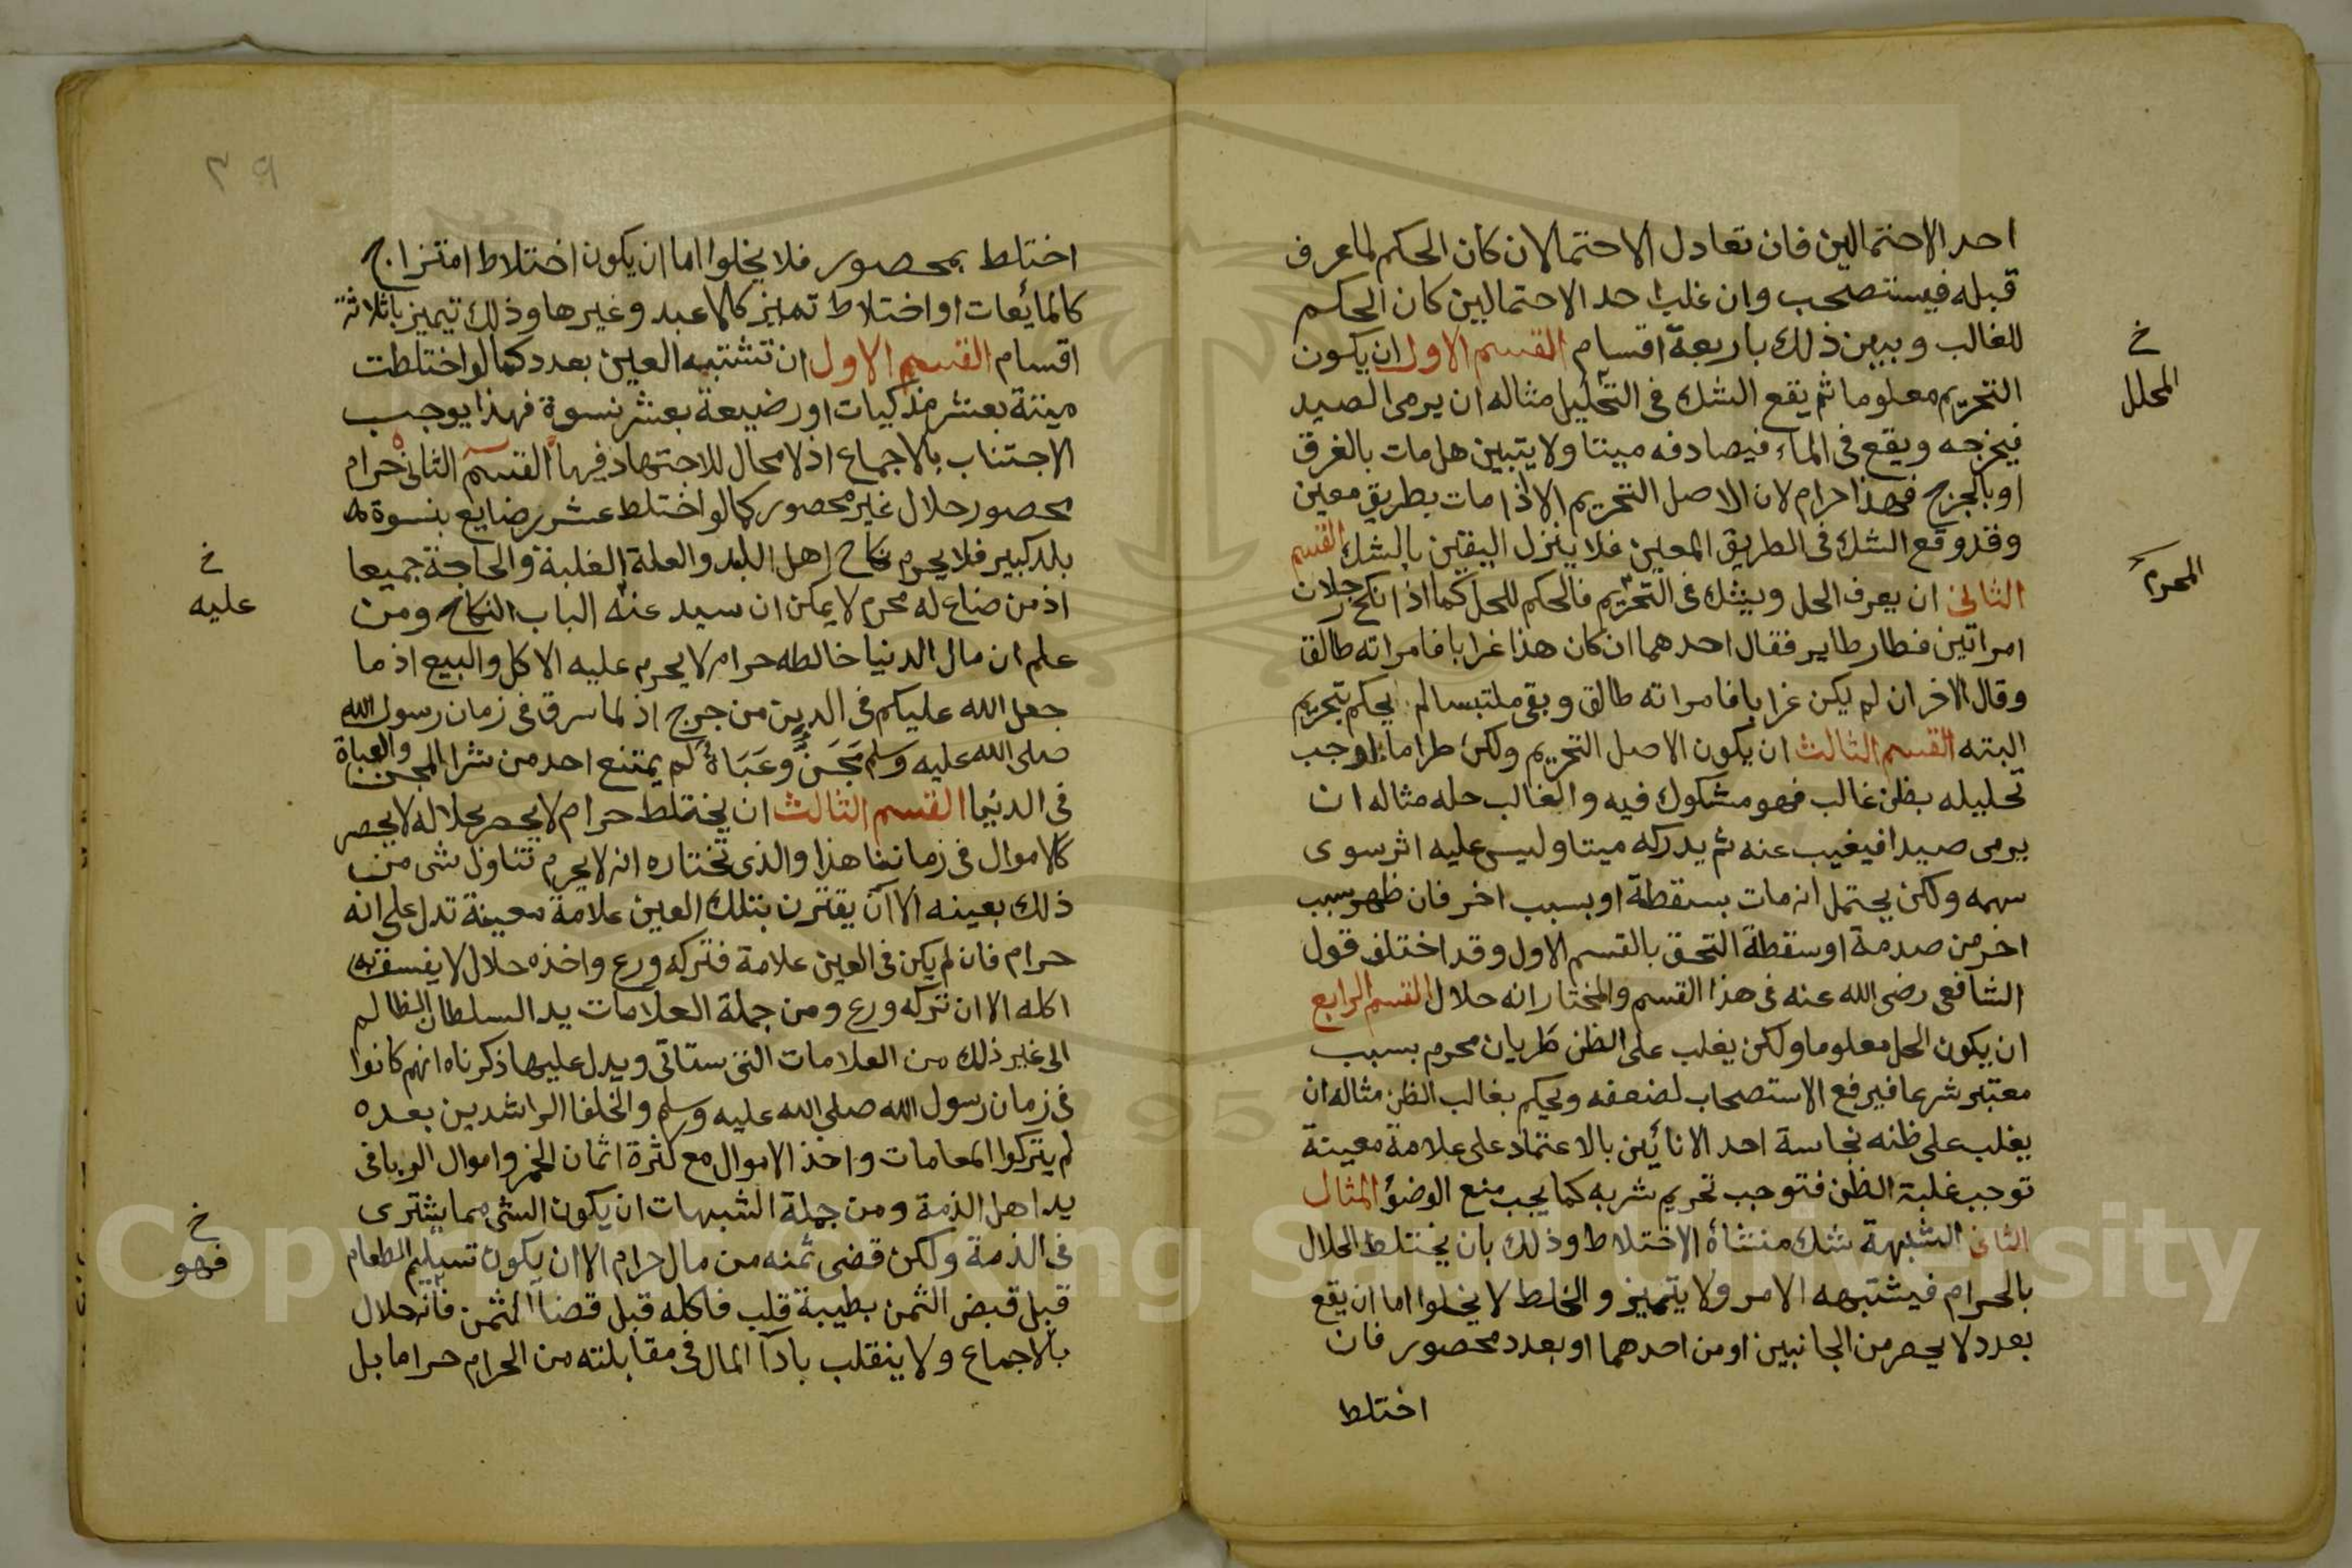 احد الاحتمالين فان تعادل الاحتمالان كان الحكم لما عرف
قبله فيستصحب وان غلب احد الاحتمالين كان الحكم
للغالب وبيين ذلك باربعة اقسام القسم الاول ان يكون
التحريم معلوما ثم يقع الشك فى التحليل مثاله ان يرمى الصيد
فيخرجه ويقع فى الماء فيصادفه ميتا ولا يتبين هل مات بالغرق
او بالجرح فهذا حرام لان الاصل التحريم الا اذا مات بطريق معين
وقد وقع الشك فى الطريق المعين فلا ينزل اليقين بالشك القسم
الثانى ان يعرف الحل ويشك فى التحريم فالحكم للحل كما اذا نكح رجلان
امراتين فطار طاير فقال احدهما ان كان هذا غرابا فامراته طالق
وقال الاخر ان لم يكن غرابا فامراته طالق وبقى ملتبسا لم يحكم بتحريم
البته القسم الثالث ان يكون الاصل التحريم ولكن طرا ما اوجب
تحليله بظن غالب فهو مشكوك فيه والغالب حله مثاله ان
يرمى صيدا فيغيب عنه ثم يدركه ميتا وليس عليه اثر سوى
سهمه ولكن يحتمل انه مات بسقطة او بسبب اخر فان ظهر سبب
اخر من صدمة او سقطة التحق بالقسم الاول وقد اختلف قول
الشافعى رضى الله عنه فى هذا القسم والمختار انه حلال القسم الرابع
ان يكون الحل معلوما ولكن يغلب على الظن طريان محرم بسبب
معتبر شرعا فيرفع الاستصحاب لضعفه ويحكم بغالب الظن مثاله ان
يغلب على ظنه نجاسة احد الانائين بالاعتماد على علامة معينة
توجب غلبة الظن فتوجب تحريم شربه كما يجب منع الوضؤ المثال
الثانى الشبهة شك منشأه الاختلاط وذلك بان يختلط الحلال
بالحرام فيشتبهه الامر ولا يتميز والخلط لا يخلوا اما ان يقع
بعدد لا يحصر من الجانبين او من احدهما او بعدد محصور فان
اختلط
خ
المحلل
المحرم
٣٩
اختلط بمحصور فلا يخلوا اما ان يكون اختلاط امتزاج
كالمائعات او اختلاط تميز كالاعبد وغيرها وذلك يتميز باثلاثة
اقسام القسم الاول ان تشتبه العين بعدد كما لو اختلطت
ميتة بعشر مذكيات او رضيعة بعشر نسوة فهذا يوجب
الاجتناب بالاجماع اذ لا مجال للاجتهاد فيها القسم الثانى حرام
محصور حلال غير محصور كما لو اختلط عشر رضايع بنسوة
بلد كبير فلا يحرم نكاح اهل البلد والعلة الغلبة والحاجة جميعا
اذ من ضاع له محرم لا يمكن ان سيد عنه الباب النكاح ومن
علم ان مال الدنيا خالطه حرام لا يحرم عليه الاكل والبيع اذ ما
جعل الله عليكم فى الدين من حرج اذ لما سرق فى زمان رسول الله
صلى الله عليه وسلم مجن وعباة لم يمتنع احد من شرا المجن والعباة
فى الدنيا القسم الثالث ان يختلط حرام لا يحصر بحلاله لا يحصر
كالاموال فى زماننا هذا والذى تختاره انه لا يحرم تناول شى من
ذلك بعينه الا ان يقترن بتلك العين علامة معينة تدل على انه
حرام فان لم يكن فى العين علامة فتركه ورع واخذه حلال لا يفسق به
اكله الا ان تركه ورع ومن جملة العلامات يد السلطان الظالم
الى غير ذلك من العلامات التى ستاتى ويدل عليها ذكرناه انهم كانوا
فى زمان رسول الله صلى الله عليه وسلم والخلفا الراشدين بعده
لم يتركوا المعامات واخذ الاموال مع كثرة اثمان الخمر واموال الربا فى
يد اهل الذمة ومن جملة الشبهات ان يكون الشى مما يشترى
فى الذمة ولكن قضى ثمنه من مال حرام الا ان يكون تسليم الطعام
قبل قبض الثمن بطيبة قلب فاكله قبل قضاآ الثمن فانه حلال
بالاجماع ولا ينقلب باداآ المال فى مقابلته من الحرام حراما بل
خ
عليه
خ
فهو
Copyright © King Saud University
1957